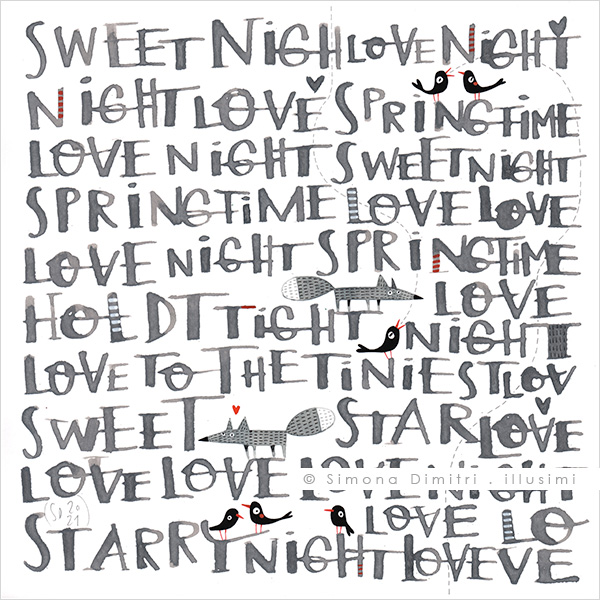 SWEET NIGHLOVE NIGHT
NIGHTLOVE SPRINGTIME
LOVE NIGHT SWEETNIGHT
SPRINGTIME LOVE LOVE
LOVE NIGHT SPRINGTIME
HOLDT TIGHT LOVE
NIGHT
LOVE TO THE TINIESTLOV
SWEET STARLOVE
LOVE LOVE LOVE LOVE NIGHT
© Simona Dimitri . illusimi
SD 20
21
LOVE LO
STARRYNIGHTLOVEVE